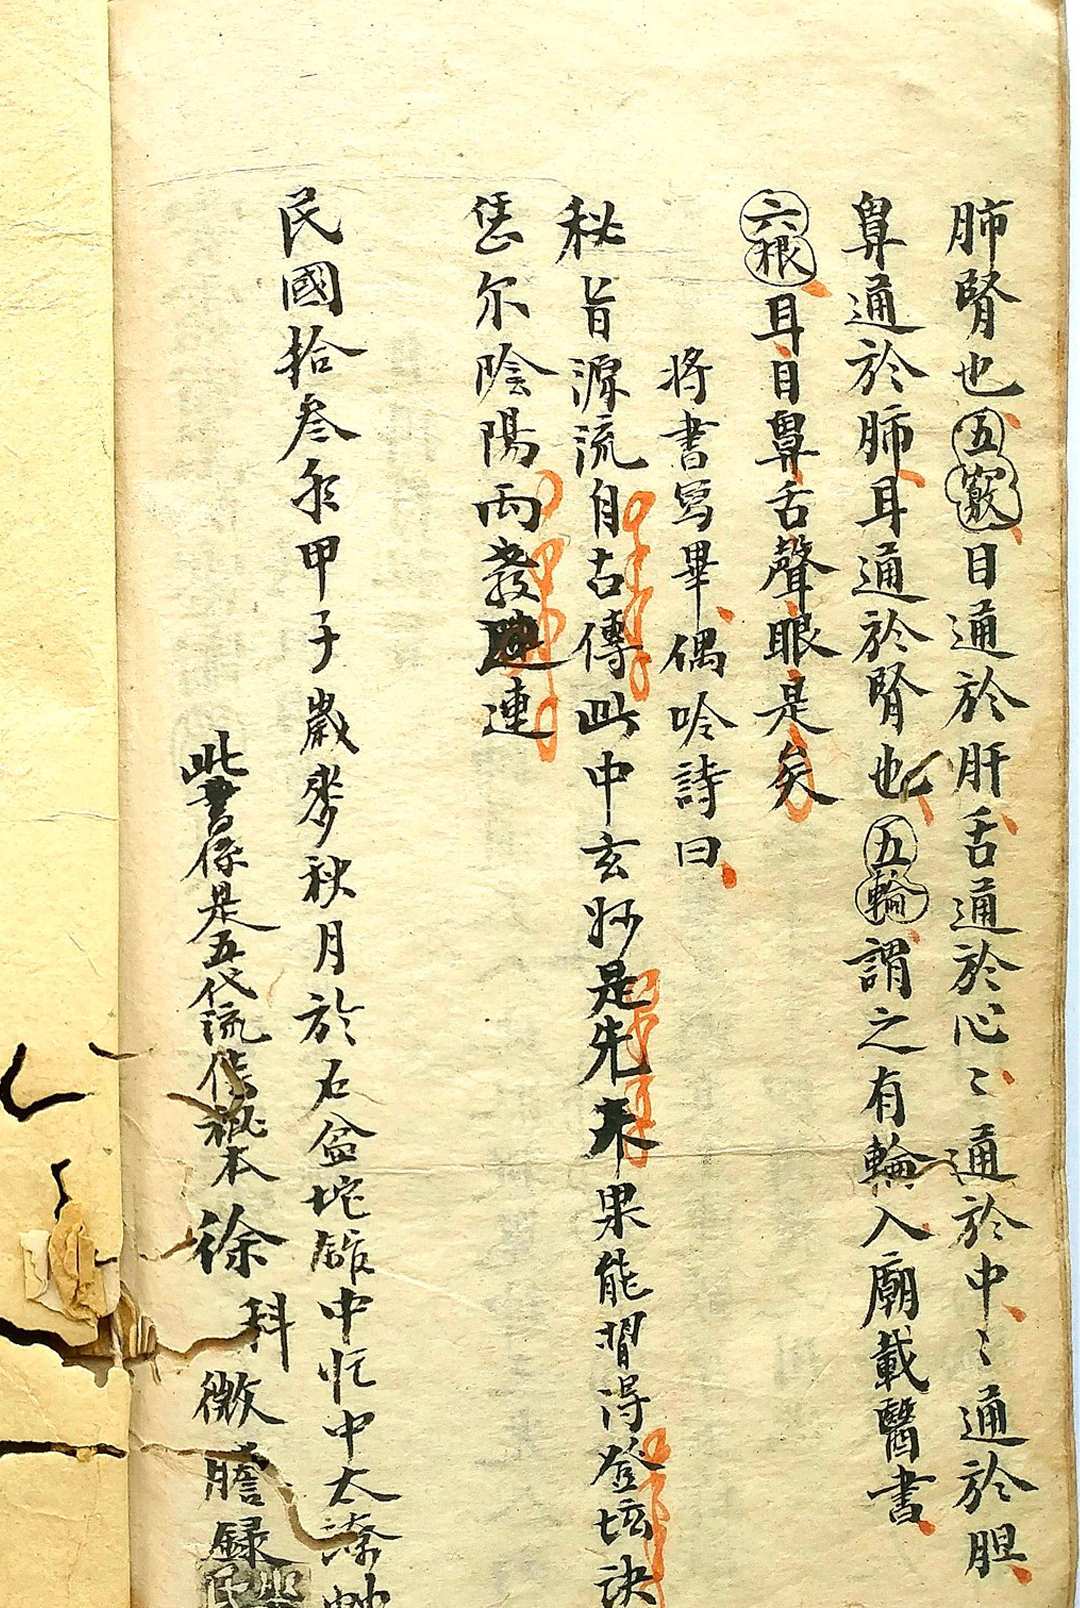 肺腎也五竅目通於肝舌通於心〻通於中〻通於胆
鼻通於肺耳通於腎也五輪謂之有輪入廟載醫書
六根耳目鼻舌聲眼是矣
將書寫畢偶吟詩曰
秘旨源流自古傳此中玄妙是先天果能習得登壇訣
恁尔陰陽両發連
民國拾叁年甲子歲麥秋月於石盆坨館中忙中太潦
此書係是五代流傳秘本徐科徵謄録